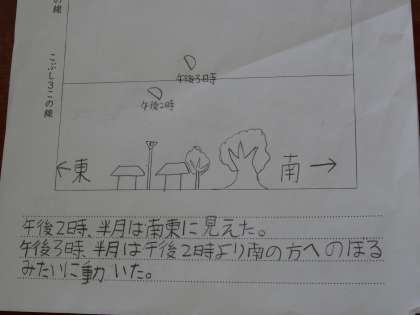 の線
午後3時
こぶし3この線
午後2時
←東
南→
午後2時、半月は南東に見えた。
午後3時、半月は午後2時より南の方へのぼる
みたいに動いた。